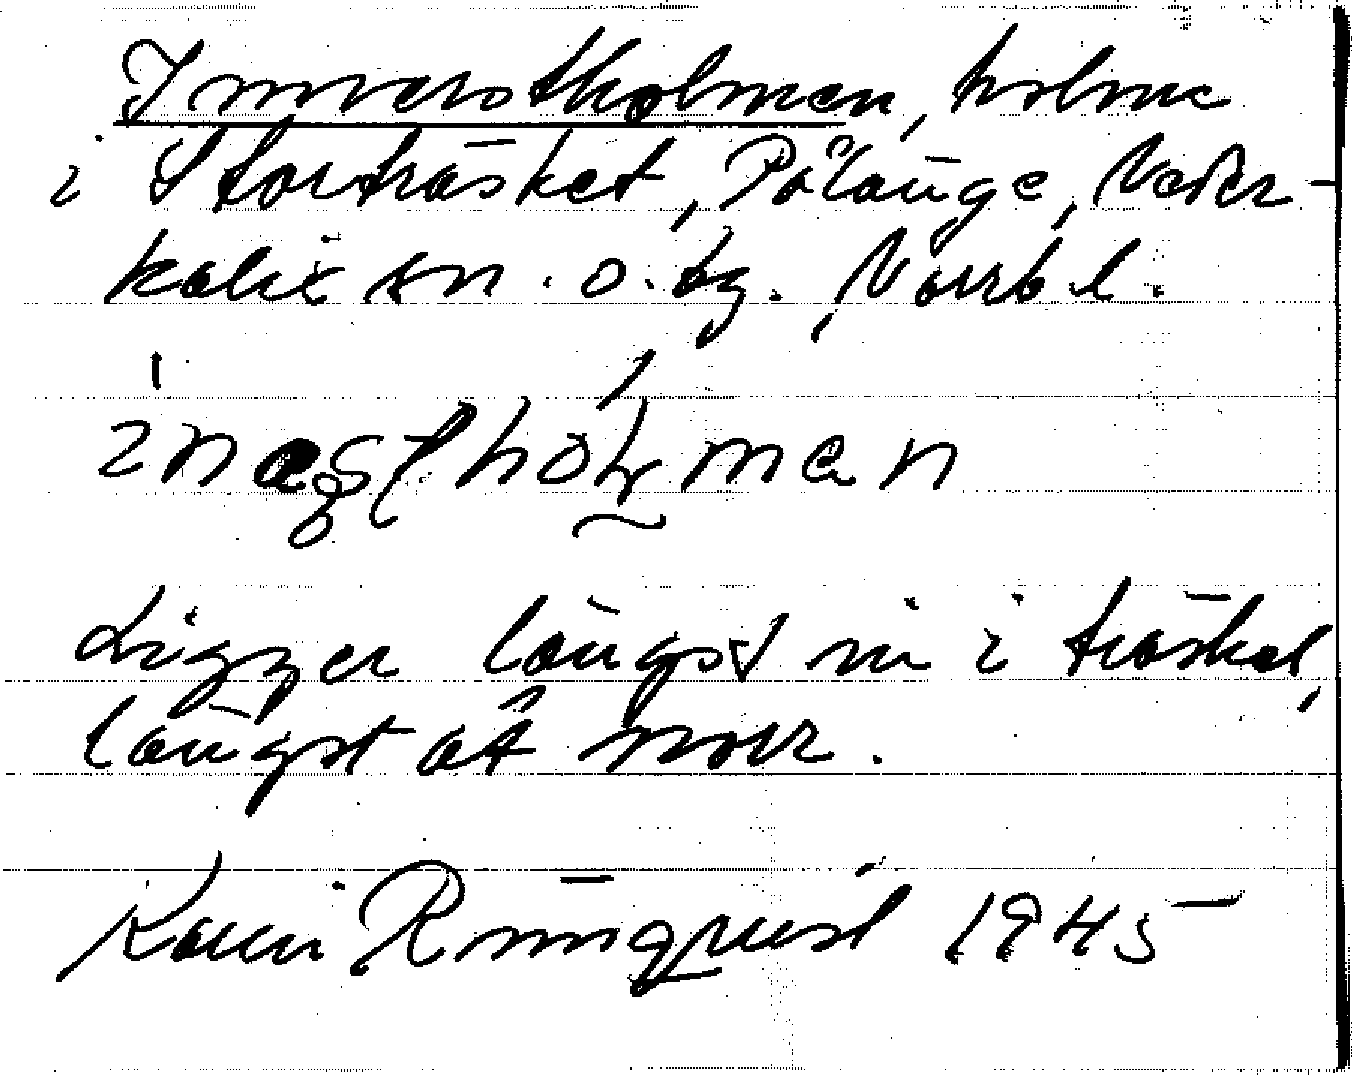 Innerstholmen, holme
i Storträsket, Pålänge, Neder-
kalix sn. o. tg. Norrb l.
Ligger längst in i träsket,
längst åt norr.
Karin Rönnqvist 1945